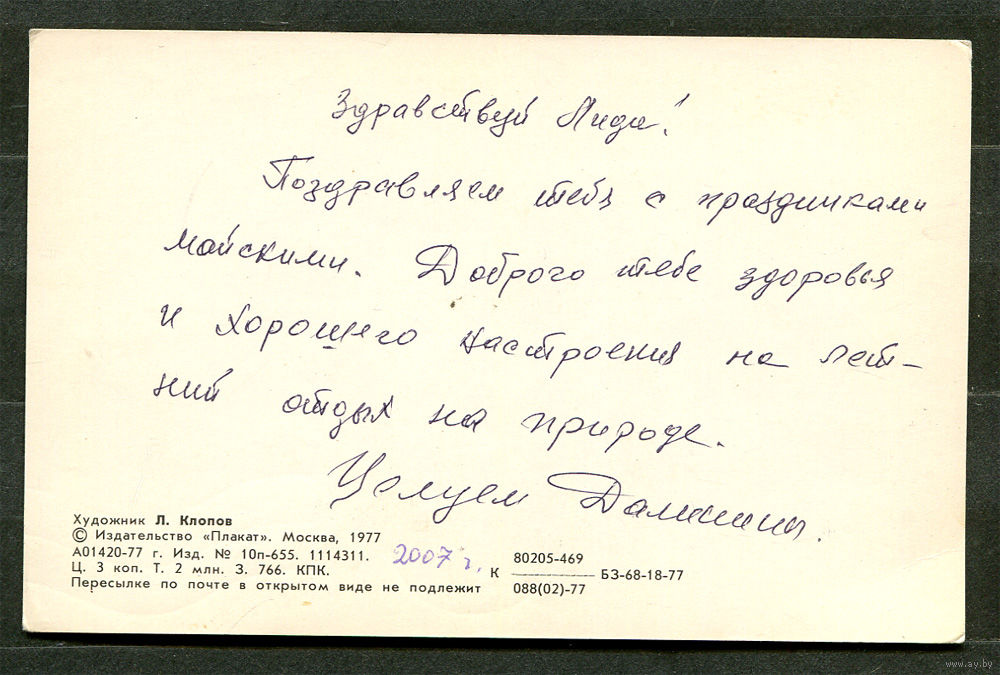 Здравствуй Лида!
Поздравляем тебя с праздничками
майскими. Доброго тебе здоровья
и хорошего настроения на лет-
ний отдых на природе.
Целуем
Художник Л. Клопов
© Издательство «Плакат». Москва, 1977
А01420-77 г. Изд. № 10п-655. 1114311.
Ц. 3 коп. Т. 2 млн. З. 766. КПК.
Пересылке по почте в открытом виде не подлежит
2007 г.
К 80205-469
088(02)-77
БЗ-68-18-77
www.ay.by